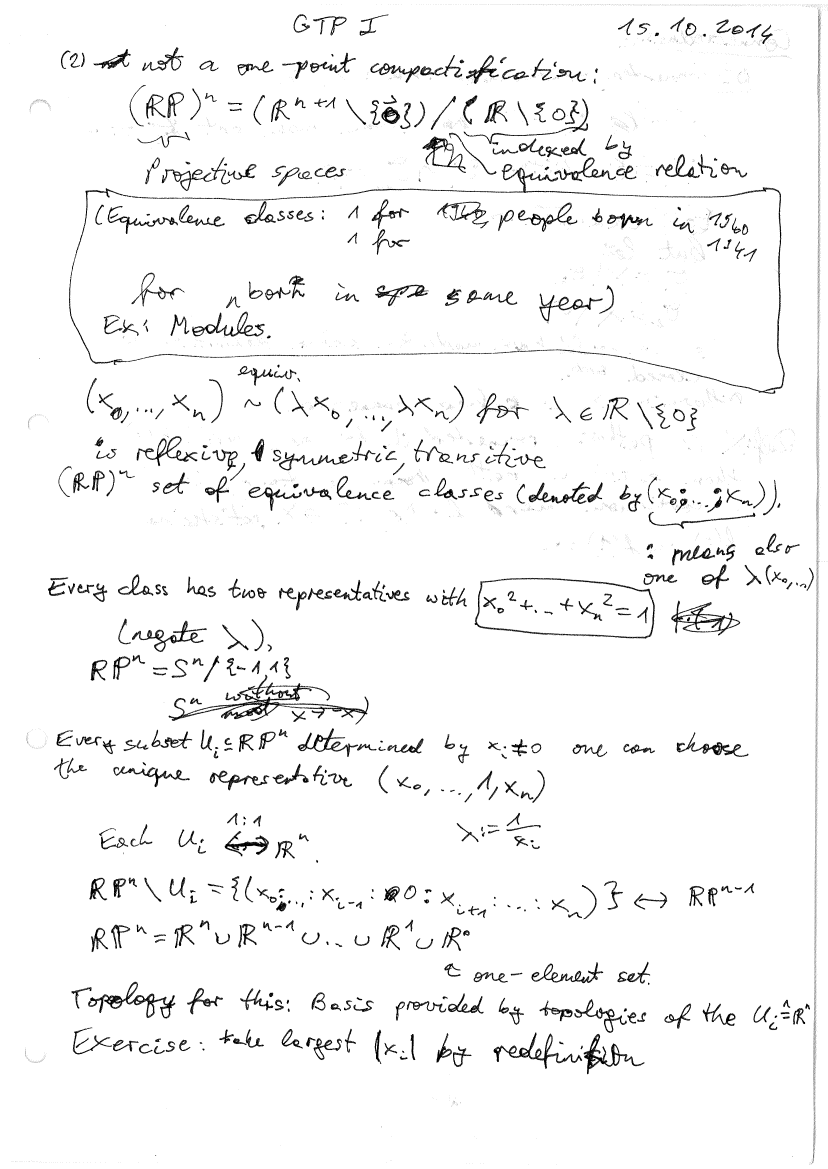 GTP I 15.10.2014
(2) not a one-point compactification:
(RP)ⁿ = (ℝⁿ⁺¹ \ {0}) / (ℝ \ {0})
Projective spaces indexed by
equivalence relation
(Equivalence classes: 1 for people born in 1940
1 for 1941
for n born in same year)
Ex: Modules.
equiv.
(x₀, ..., xₙ) ~ (λx₀, ..., λxₙ) for λ ∈ ℝ \ {0}
is reflexive, symmetric, transitive
(RP)ⁿ set of equivalence classes (denoted by (x₀:...:xₙ)).
: means also
one of λ(x₀,...)
Every class has two representatives with x₀² + ... + xₙ² = 1
(negate λ),
RPⁿ = Sⁿ / {-1, 1}
Every subset Uᵢ ⊆ RPⁿ determined by xᵢ ≠ 0 one can choose
the unique representative (x₀, ..., 1, xₙ)
λ := 1/xᵢ
Each Uᵢ ↔ ℝⁿ. 1:1
RPⁿ \ Uᵢ = {(x₀:...:xᵢ₋₁:0:xᵢ₊₁:...:xₙ)} ↔ RPⁿ⁻¹
RPⁿ = ℝⁿ ∪ ℝⁿ⁻¹ ∪ ... ∪ ℝ¹ ∪ ℝ⁰
↑ one-element set.
Topology for this: Basis provided by topologies of the Uᵢ ≙ ℝⁿ
Exercise: take largest |xᵢ| by redefinition